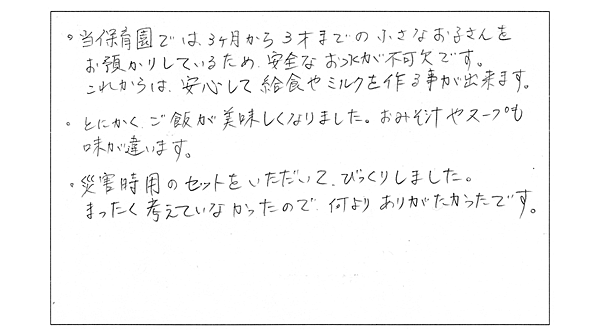 。当保育園では、3ヶ月から3才までの小さなお子さんを
お預かりしているため、安全なお水が不可欠です。
これからは、安心して給食やミルクを作る事が出来ます。
。とにかく、ご飯が美味しくなりました。おみそ汁やスープも
味が違います。
。災害時用のセットをいただいて、びっくりしました。
まったく考えていなかったので、何よりありがたかったです。